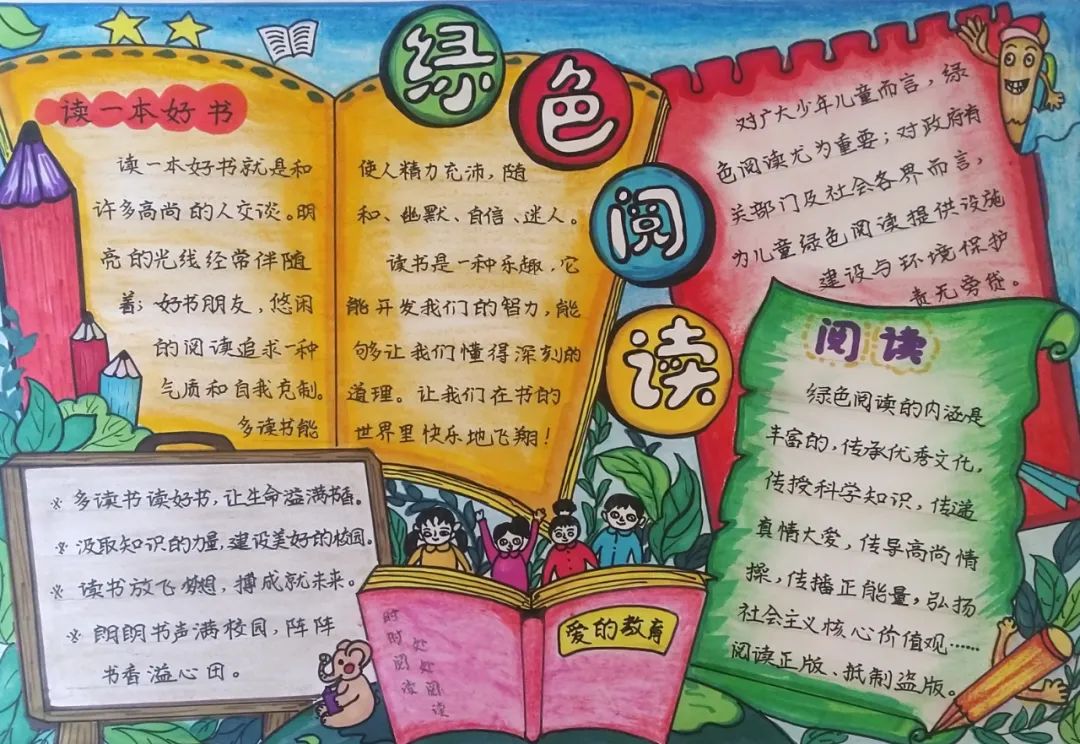 绿色阅读
读一本好书
读一本好书就是和
许多高尚的人交谈。明
亮的光线经常伴随
着；好书朋友，悠闲
的阅读追求一种
气质和自我克制。
多读书能
使人精力充沛，随
和、幽默、自信、迷人。
读书是一种乐趣，它
能开发我们的智力，能
够让我们懂得深刻的
道理。让我们在书的
世界里快乐地飞翔！
对广大少年儿童而言，绿
色阅读尤为重要；对政府有
关部门及社会各界而言，
为儿童绿色阅读提供设施
建设与环境保护
责无旁贷。
阅读
绿色阅读的内涵是
丰富的，传承优秀文化，
传授科学知识，传递
真情大爱，传导高尚情
操，传播正能量，弘扬
社会主义核心价值观……
阅读正版、抵制盗版。
※ 多读书读好书，让生命溢满书香。
※ 汲取知识的力量，建设美好的校园。
※ 读书放飞梦想，搏成就未来。
※ 朗朗书声满校园，阵阵
书香溢心田。
时时阅读
处处阅读
爱的教育